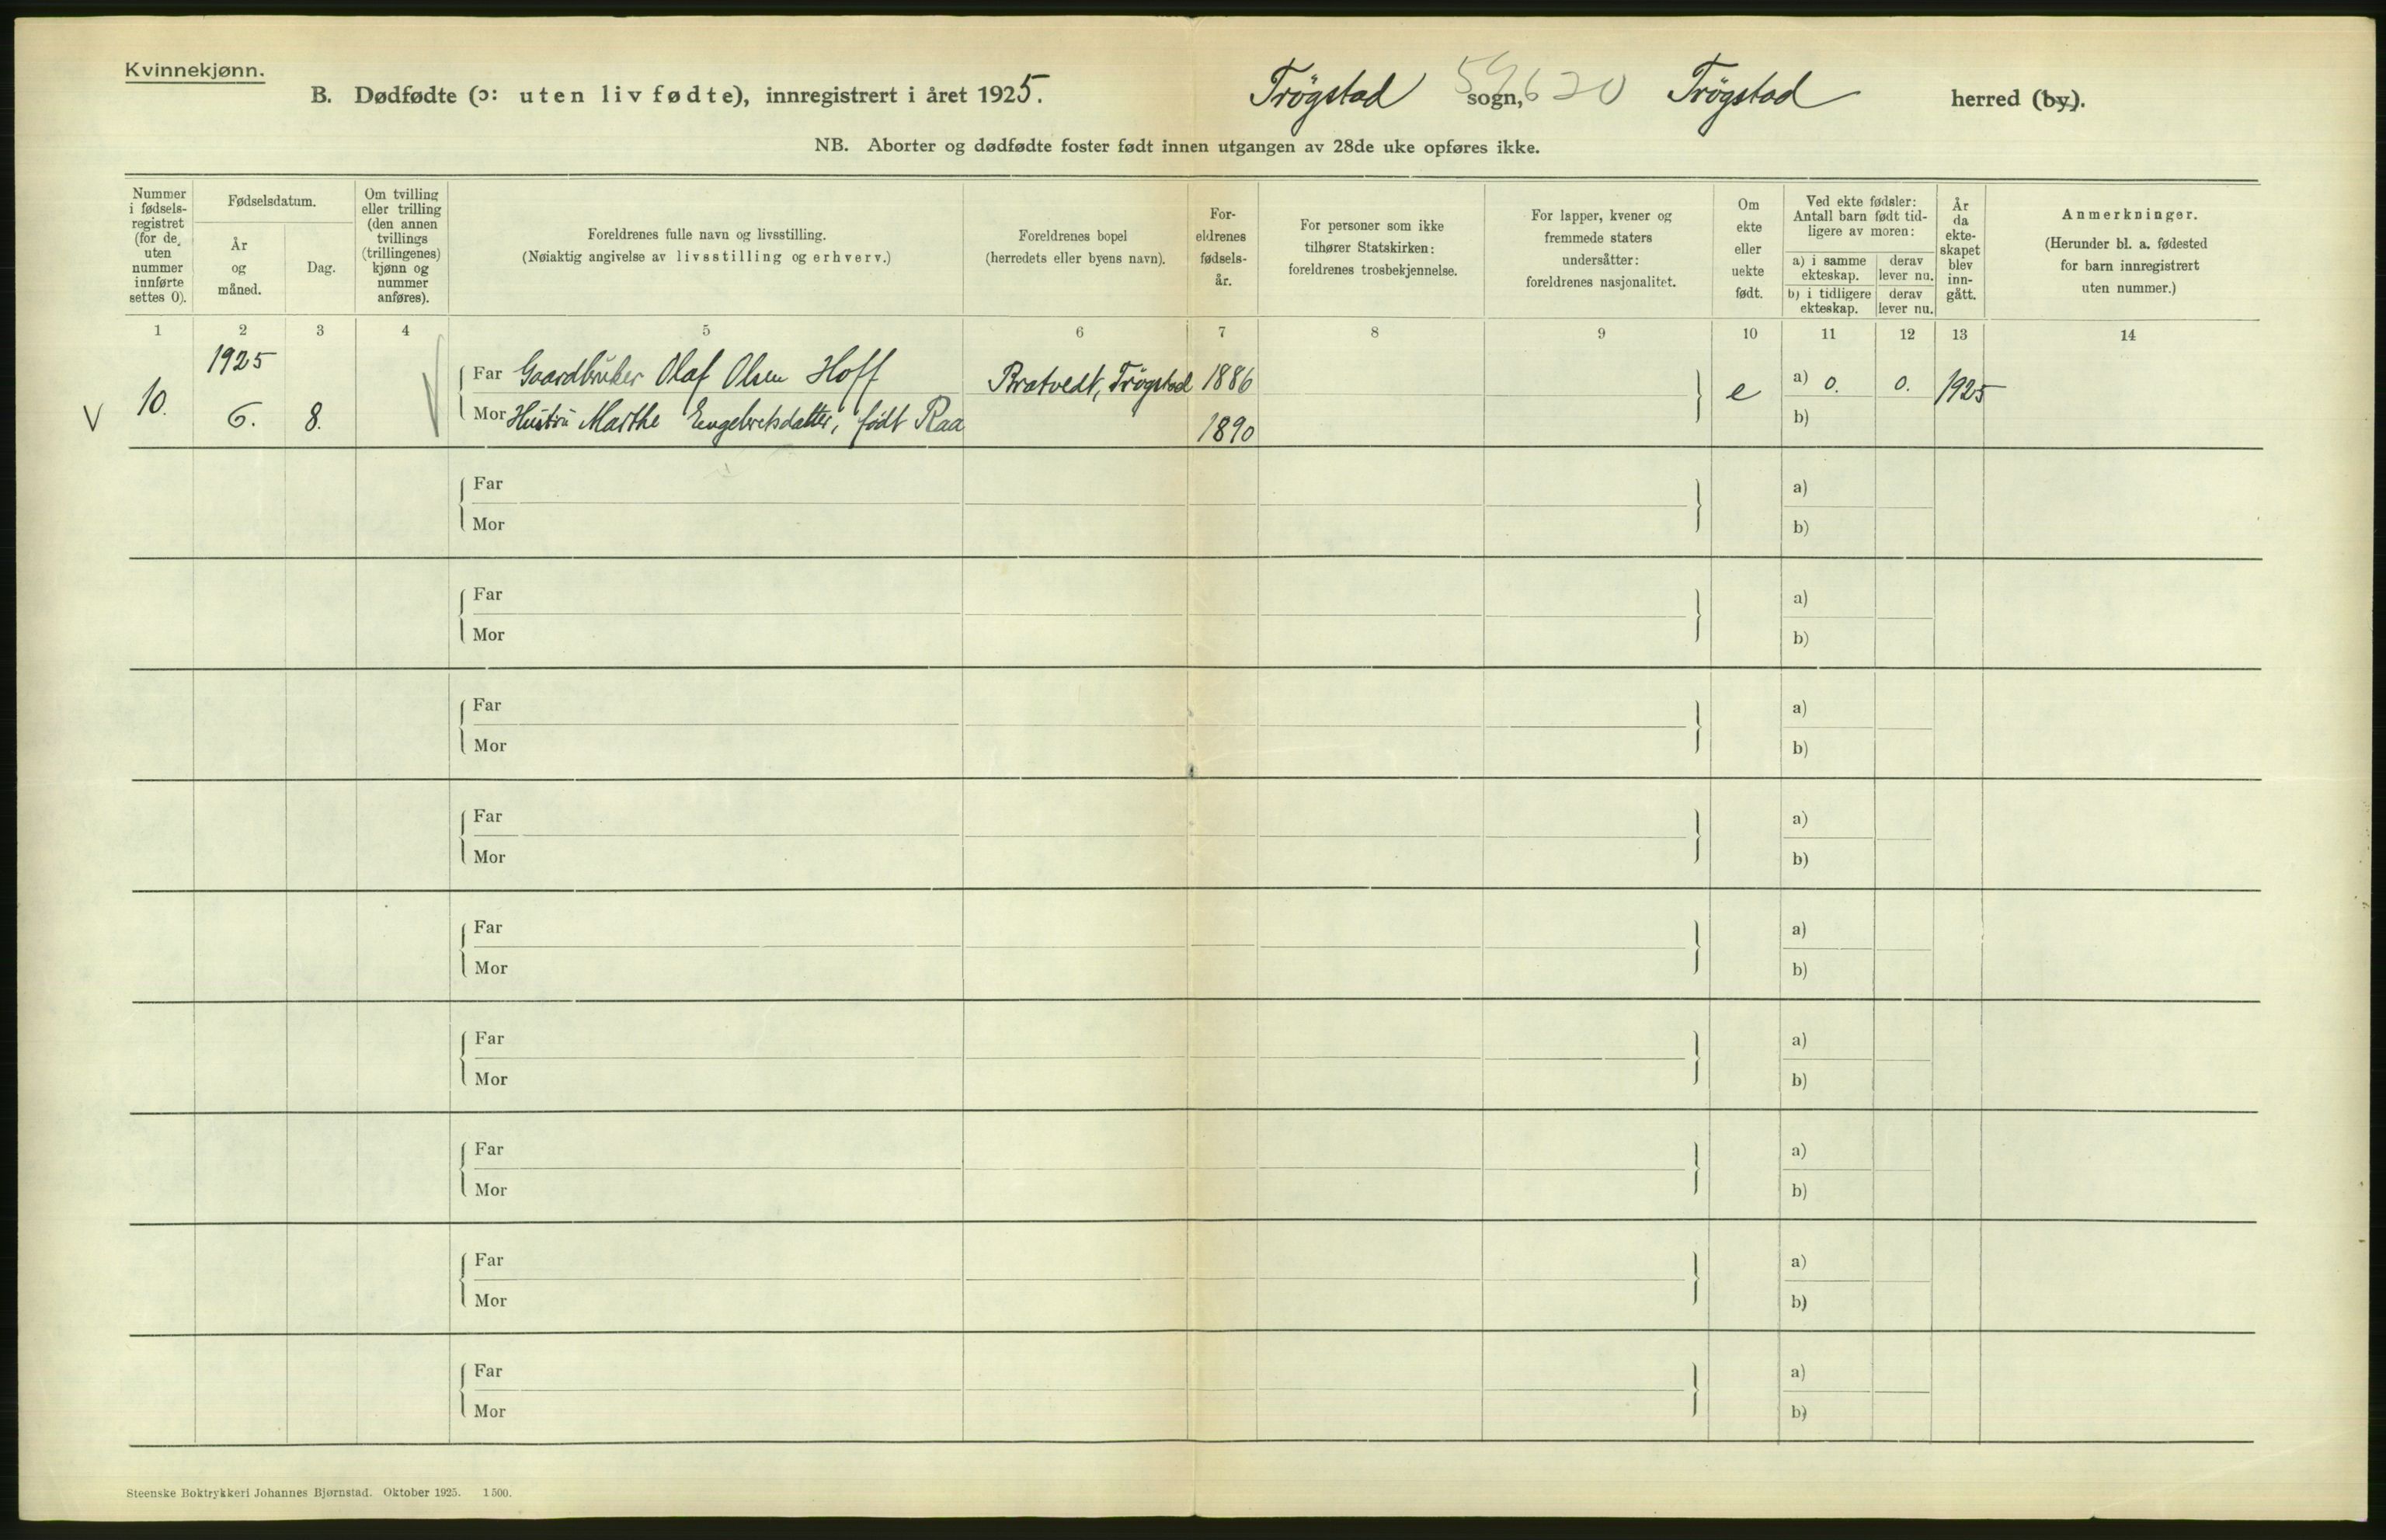 Kvinnekjønn.
B. Dødfødte (ɔ: uten liv fødte), innregistrert i året 1925. Trögstad sogn, Trögstad herred (by).
620
NB. Aborter og dødfødte foster født innen utgangen av 28de uke opføres ikke.
Nummer
i fødsels-
registret
(for de
uten
nummer
innførte
settes 0).
Fødselsdatum.
År
og
måned.
Dag.
Om tvilling
eller trilling
(den annen
tvillings
(trillingenes)
kjønn og
nummer
anføres).
Foreldrenes fulle navn og livsstilling.
(Nøiaktig angivelse av livsstilling og erhverv.)
Foreldrenes bopel
(herredets eller byens navn).
For-
eldrenes
fødsels-
år.
For personer som ikke
tilhører Statskirken:
foreldrenes trosbekjennelse.
For lapper, kvener og
fremmede staters
undersåtter:
foreldrenes nasjonalitet.
Om
ekte
eller
uekte
født.
Ved ekte fødsler:
Antall barn født tid-
ligere av moren:
a) i samme
ekteskap.
derav
lever nu.
b) i tidligere
ekteskap.
derav
lever nu.
År
da
ekte-
skapet
blev
inn-
gått.
Anmerkninger.
(Herunder bl. a. fødested
for barn innregistrert
uten nummer.)
1 2 3 4 5 6 7 8 9 10 11 12 13 14
1925
V 10. 6. 8.
Far Gaardbruker Olaf Olsen Hoff Bratvedt, Trögstad 1886 e a) 0. 0. 1925
Mor Hustru Marthe Engebretsdatter, født Raa 1890 b)
Far a)
Mor b)
Far a)
Mor b)
Far a)
Mor b)
Far a)
Mor b)
Far a)
Mor b)
Far a)
Mor b)
Far a)
Mor b)
Far a)
Mor b)
Far a)
Mor b)
Steenske Boktrykkeri Johannes Bjørnstad. Oktober 1925. 1500.